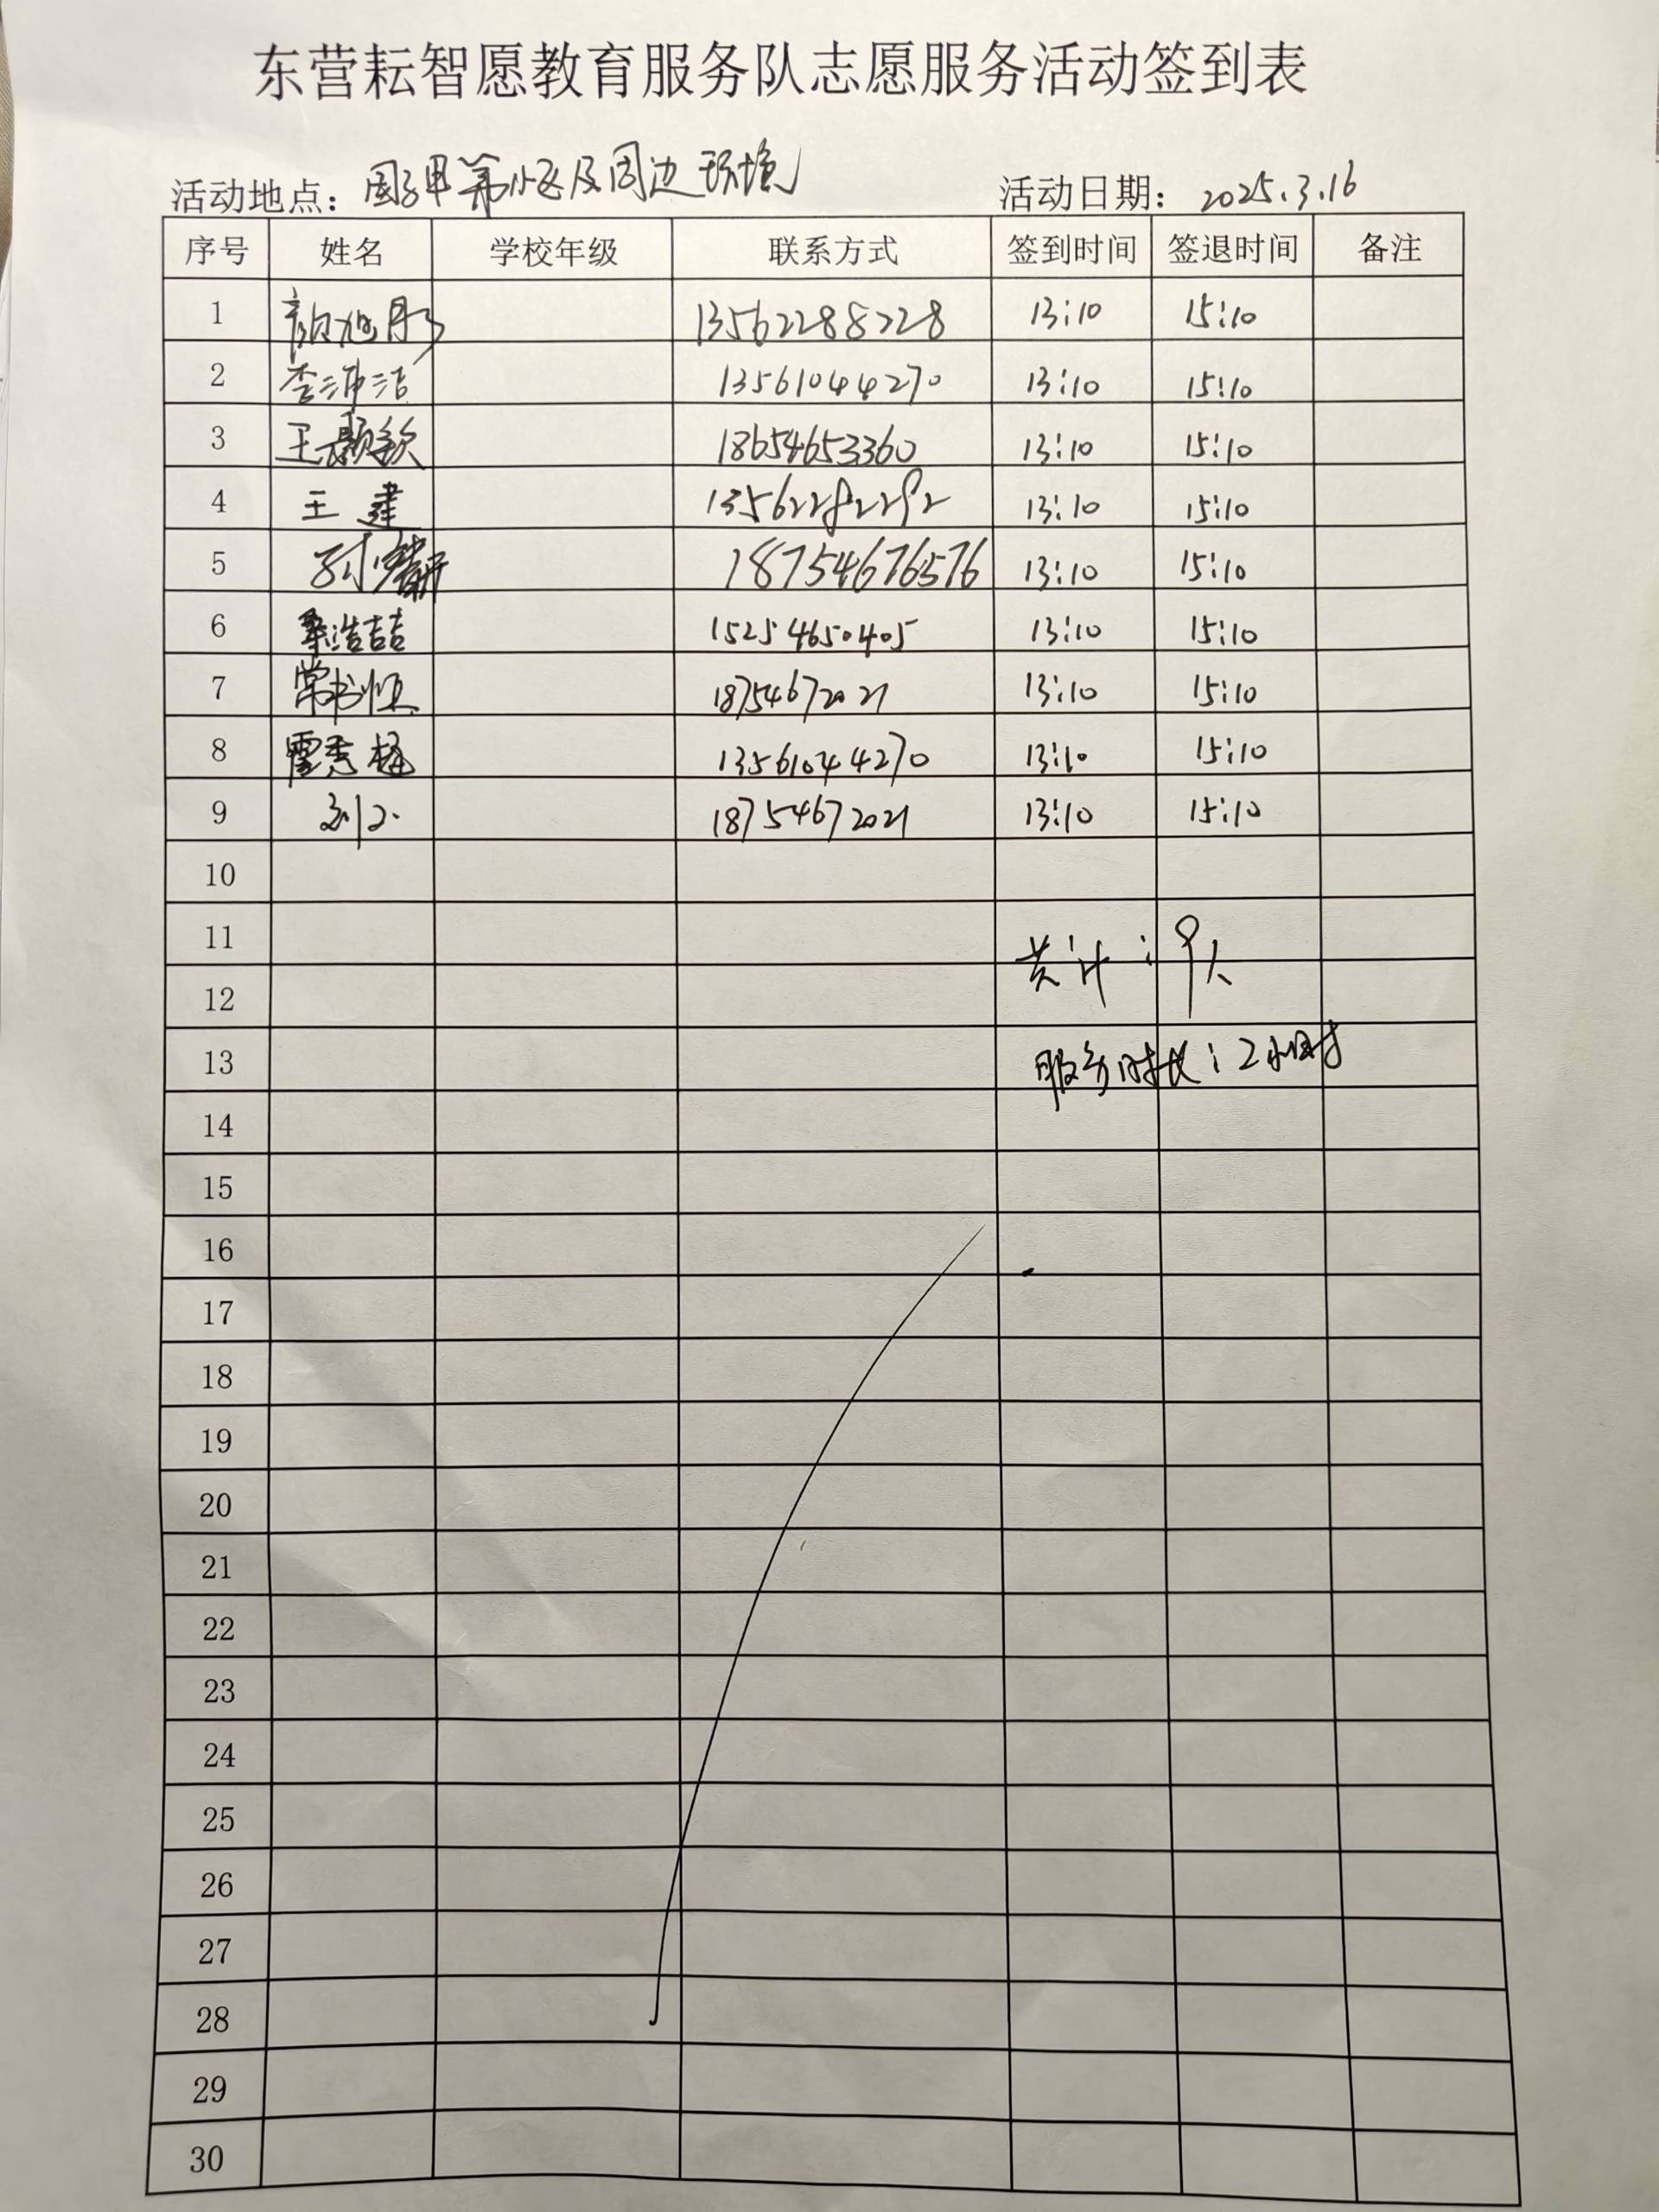 东营耘智愿教育服务队志愿服务活动签到表
活动地点：国子甲第小区及周边环境 活动日期：2025.3.16
序号 姓名 学校年级 联系方式 签到时间 签退时间 备注
1 颜旭彤 13562288228 13:10 15:10
2 李沛洁 13561044270 13:10 15:10
3 王颢钦 18654653360 13:10 15:10
4 王建 13562282292 13:10 15:10
5 18754676576 13:10 15:10
6 秦浩喆 15254650405 13:10 15:10
7 常书恒 18754672021 13:10 15:10
8 霍秀梅 13561044270 13:10 15:10
9 18754672021 13:10 15:10
10
11
共计：9人
12
13 服务时长：2小时
14
15
16
17
18
19
20
21
22
23
24
25
26
27
28
29
30